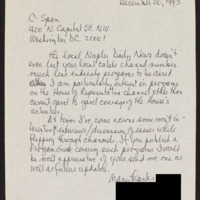 December 20, 1993
C-Span
400 N. Capitol St. N.W.
Washington DC. 20001
The local Naples Daily News doesn't
even list your local cable channel number
much less itemize programs to be aired
I am particularly interested in programs
on the House of Representatives channel other than
current gavel to gavel coverage of the House's
activities.
At times I've come across some most in-
teresting interviews/discussion pieces while
flipping through channels. If you publish a
Program Guide covering such programs I would
be most appreciative if you send me one as
well as future updates.
Many thanks